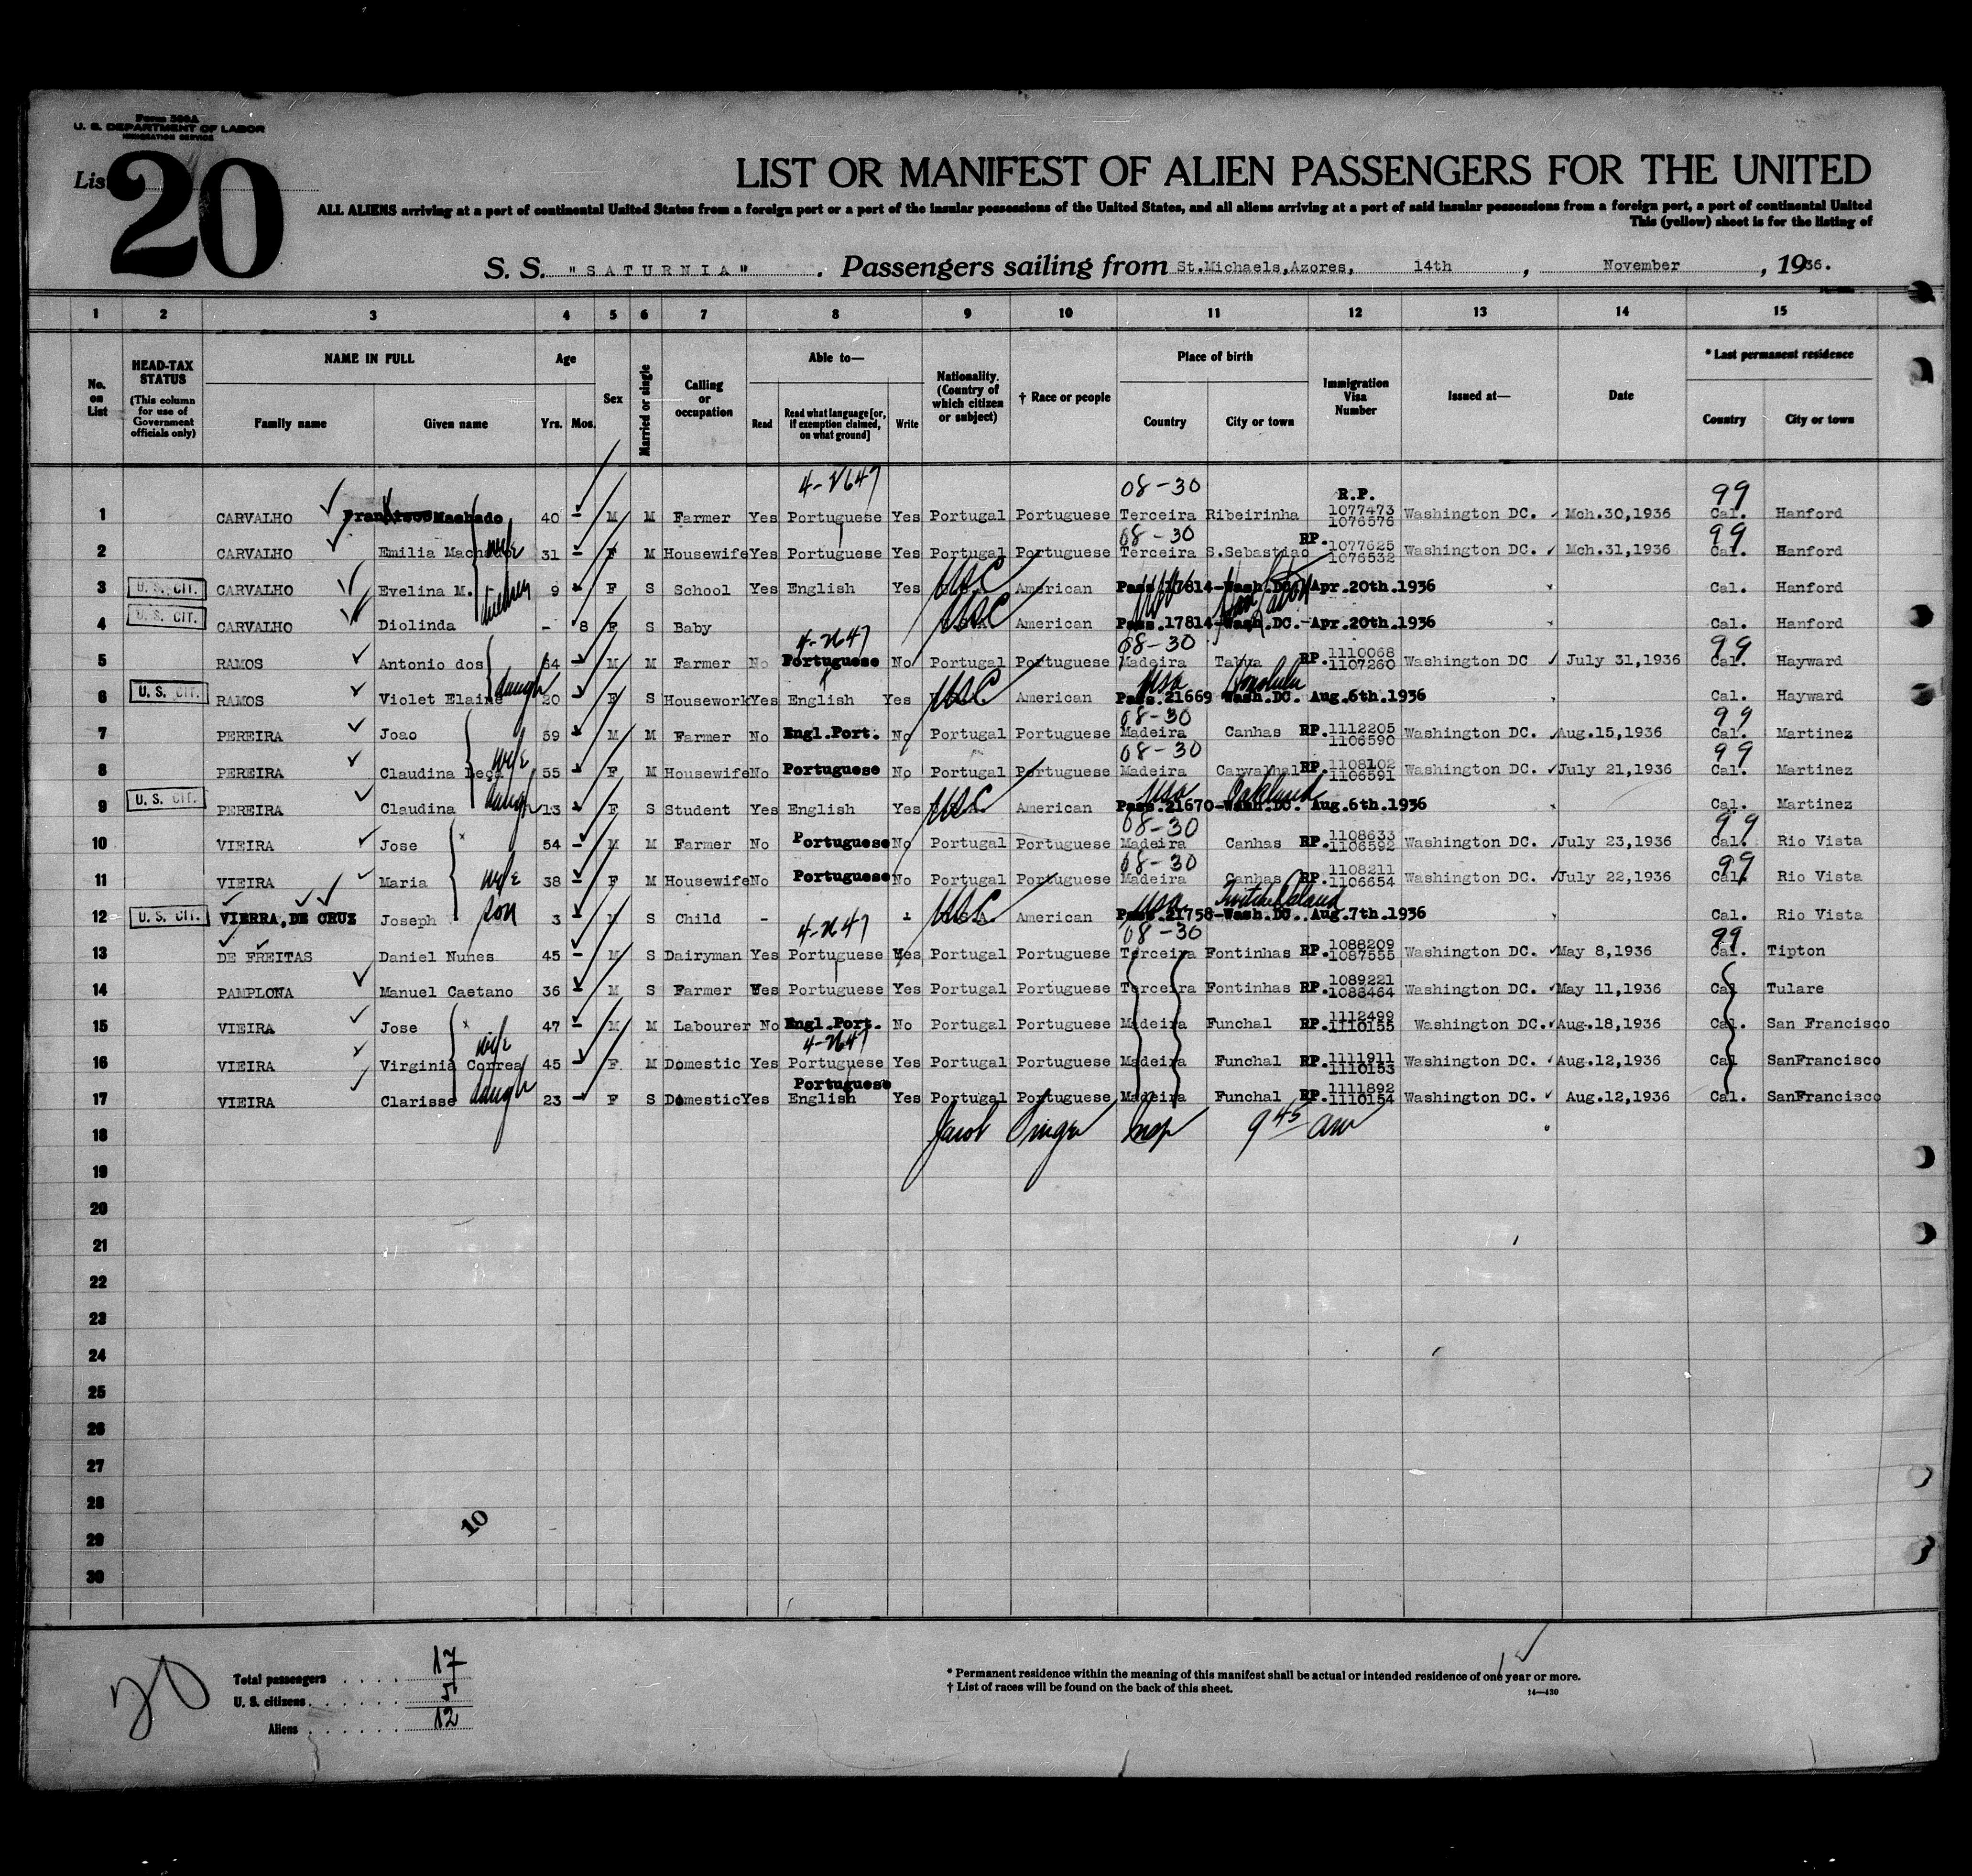 Form 500A
U. S. DEPARTMENT OF LABOR
IMMIGRATION SERVICE
List 20
LIST OR MANIFEST OF ALIEN PASSENGERS FOR THE UNITED
ALL ALIENS arriving at a port of continental United States from a foreign port or a port of the insular possessions of the United States, and all aliens arriving at a port of said insular possessions from a foreign port, a port of continental United
This (yellow) sheet is for the listing of
S. S. "SATURNIA" . Passengers sailing from St.Michaels,Azores, 14th , November , 1936.
1 2 3 4 5 6 7 8 9 10 11 12 13 14 15
No. on List
HEAD-TAX STATUS (This column for use of Government officials only)
NAME IN FULL Family name Given name
Age Yrs. Mos.
Sex
Married or single
Calling or occupation
Able to— Read Read what language [or, if exemption claimed, on what ground] Write
Nationality. (Country of which citizen or subject)
† Race or people
Place of birth Country City or town
Immigration Visa Number
Issued at—
Date
* Last permanent residence Country City or town
08-30 R.P. 99
1 CARVALHO Francisco Machado 40 - M M Farmer Yes Portuguese Yes Portugal Portuguese Terceira Ribeirinha 1077473 1076576 Washington DC. Mch.30,1936 Cal. Hanford
08-30 99
2 CARVALHO Emilia Machado wife 31 - F M Housewife Yes Portuguese Yes Portugal Portuguese Terceira S.Sebastiao RP. 1077625 1076532 Washington DC. Mch.31,1936 Cal. Hanford
3 U. S. CIT. CARVALHO Evelina M. 9 - F S School Yes English Yes USC American Pass.17814-Wash.DC. Apr.20th.1936 Cal. Hanford
4 U. S. CIT. CARVALHO Diolinda - 8 F S Baby USC American Pass.17814-Wash.DC.-Apr.20th.1936 Cal. Hanford
08-30 99
5 RAMOS Antonio dos 54 - M M Farmer No Portuguese No Portugal Portuguese Madeira RP. 1110068 1107260 Washington DC July 31,1936 Cal. Hayward
usa Honolulu
6 U. S. CIT. RAMOS Violet Elaine daugh 20 F S Housework Yes English Yes USC American Pass.21669 Wash.DC. Aug.6th.1936 Cal. Hayward
08-30 99
7 PEREIRA Joao 59 - M M Farmer No Engl.Port. No Portugal Portuguese Madeira Canhas RP. 1112205 1106590 Washington DC. Aug.15,1936 Cal. Martinez
08-30 99
8 PEREIRA Claudina Leça wife 55 - F M Housewife No Portuguese No Portugal Portuguese Madeira Carvalhal RP. 1108102 1106591 Washington DC. July 21,1936 Cal. Martinez
usa Oakland
9 U. S. CIT. PEREIRA Claudina daugh 13 - F S Student Yes English Yes USC American Pass.21670-Wash.DC. Aug.6th.1936 Cal. Martinez
08-30 99
10 VIEIRA Jose 54 - M M Farmer No Portuguese No Portugal Portuguese Madeira Canhas RP. 1108633 1106592 Washington DC. July 23,1936 Cal. Rio Vista
08-30 99
11 VIEIRA Maria wife 38 - F M Housewife No Portuguese No Portugal Portuguese Madeira Canhas RP. 1108211 1106654 Washington DC. July 22,1936 Cal. Rio Vista
usa
12 U. S. CIT. VIERRA,DE CRUZ Joseph son 3 M S Child - - USC American Pass.21758-Wash.DC.. Aug.7th.1936 Cal. Rio Vista
08-30 99
13 DE FREITAS Daniel Nunes 45 - M S Dairyman Yes Portuguese Yes Portugal Portuguese Terceira Fontinhas RP. 1088209 1087555 Washington DC. May 8,1936 Cal. Tipton
14 PAMPLONA Manuel Caetano 36 - M S Farmer Yes Portuguese Yes Portugal Portuguese Terceira Fontinhas RP. 1089221 1088464 Washington DC. May 11,1936 Cal Tulare
15 VIEIRA Jose 47 - M M Labourer No Engl.Port. No Portugal Portuguese Madeira Funchal RP. 1112499 1110155 Washington DC. Aug.18,1936 Cal. San Francisco
16 VIEIRA Virginia Correa wife 45 - F M Domestic Yes Portuguese Yes Portugal Portuguese Madeira Funchal RP. 1111911 1110153 Washington DC. Aug.12,1936 Cal SanFrancisco
17 VIEIRA Clarisse daugh 23 - F S Domestic Yes Portuguese English Yes Portugal Portuguese Madeira Funchal RP. 1111892 1110154 Washington DC. Aug.12,1936 Cal. SanFrancisco
18 Jacob Insp 9 45 am
19
20
21
22
23
24
25
26
27
28
29
30
10
20
Total passengers 17
U. S. citizens 5
Aliens 12
* Permanent residence within the meaning of this manifest shall be actual or intended residence of one year or more.
† List of races will be found on the back of this sheet.
14—430